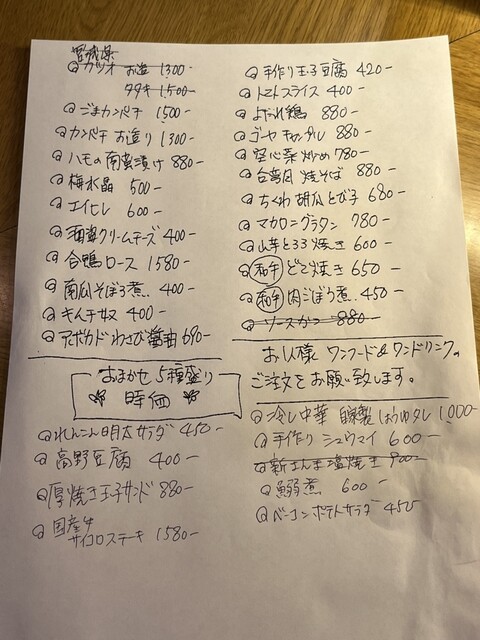 宮城県
カツオ お造 1300-
タタキ 1500-
ごまカンパチ 1500-
カンパチ お造り 1300-
ハモの南蛮漬け 880-
梅水晶 500-
エイヒレ 600-
酒盗クリームチーズ 400-
合鴨ロース 1580-
南瓜そぼろ煮. 400-
キムチ奴 400-
アボカドわさび醤油 690-
おまかせ5種盛り
時価
れんこん明太サラダ 450-
高野豆腐 400-
厚焼き玉子サンド 880-
国産牛
サイコロステーキ 1580-
手作り玉子豆腐 420-
トマトスライス 400-
よだれ鶏 880-
ゴーヤチャンプル 880-
空心菜炒め 780-
台湾風焼そば 880-
ちくわ胡瓜とび子 680-
マカロニグラタン 780-
山芋とろろ焼き 600-
和牛 どて焼き 650-
和牛 肉ごぼう煮. 450-
ソースかつ 880-
お1人様 ワンフード&ワンドリンクの
ご注文をお願い致します。
冷し中華 自家製しょうゆタレ 1000-
手作りシュウマイ 600-
新さんま塩焼き 900-
鰯煮 600-
ベーコンポテトサラダ 450-